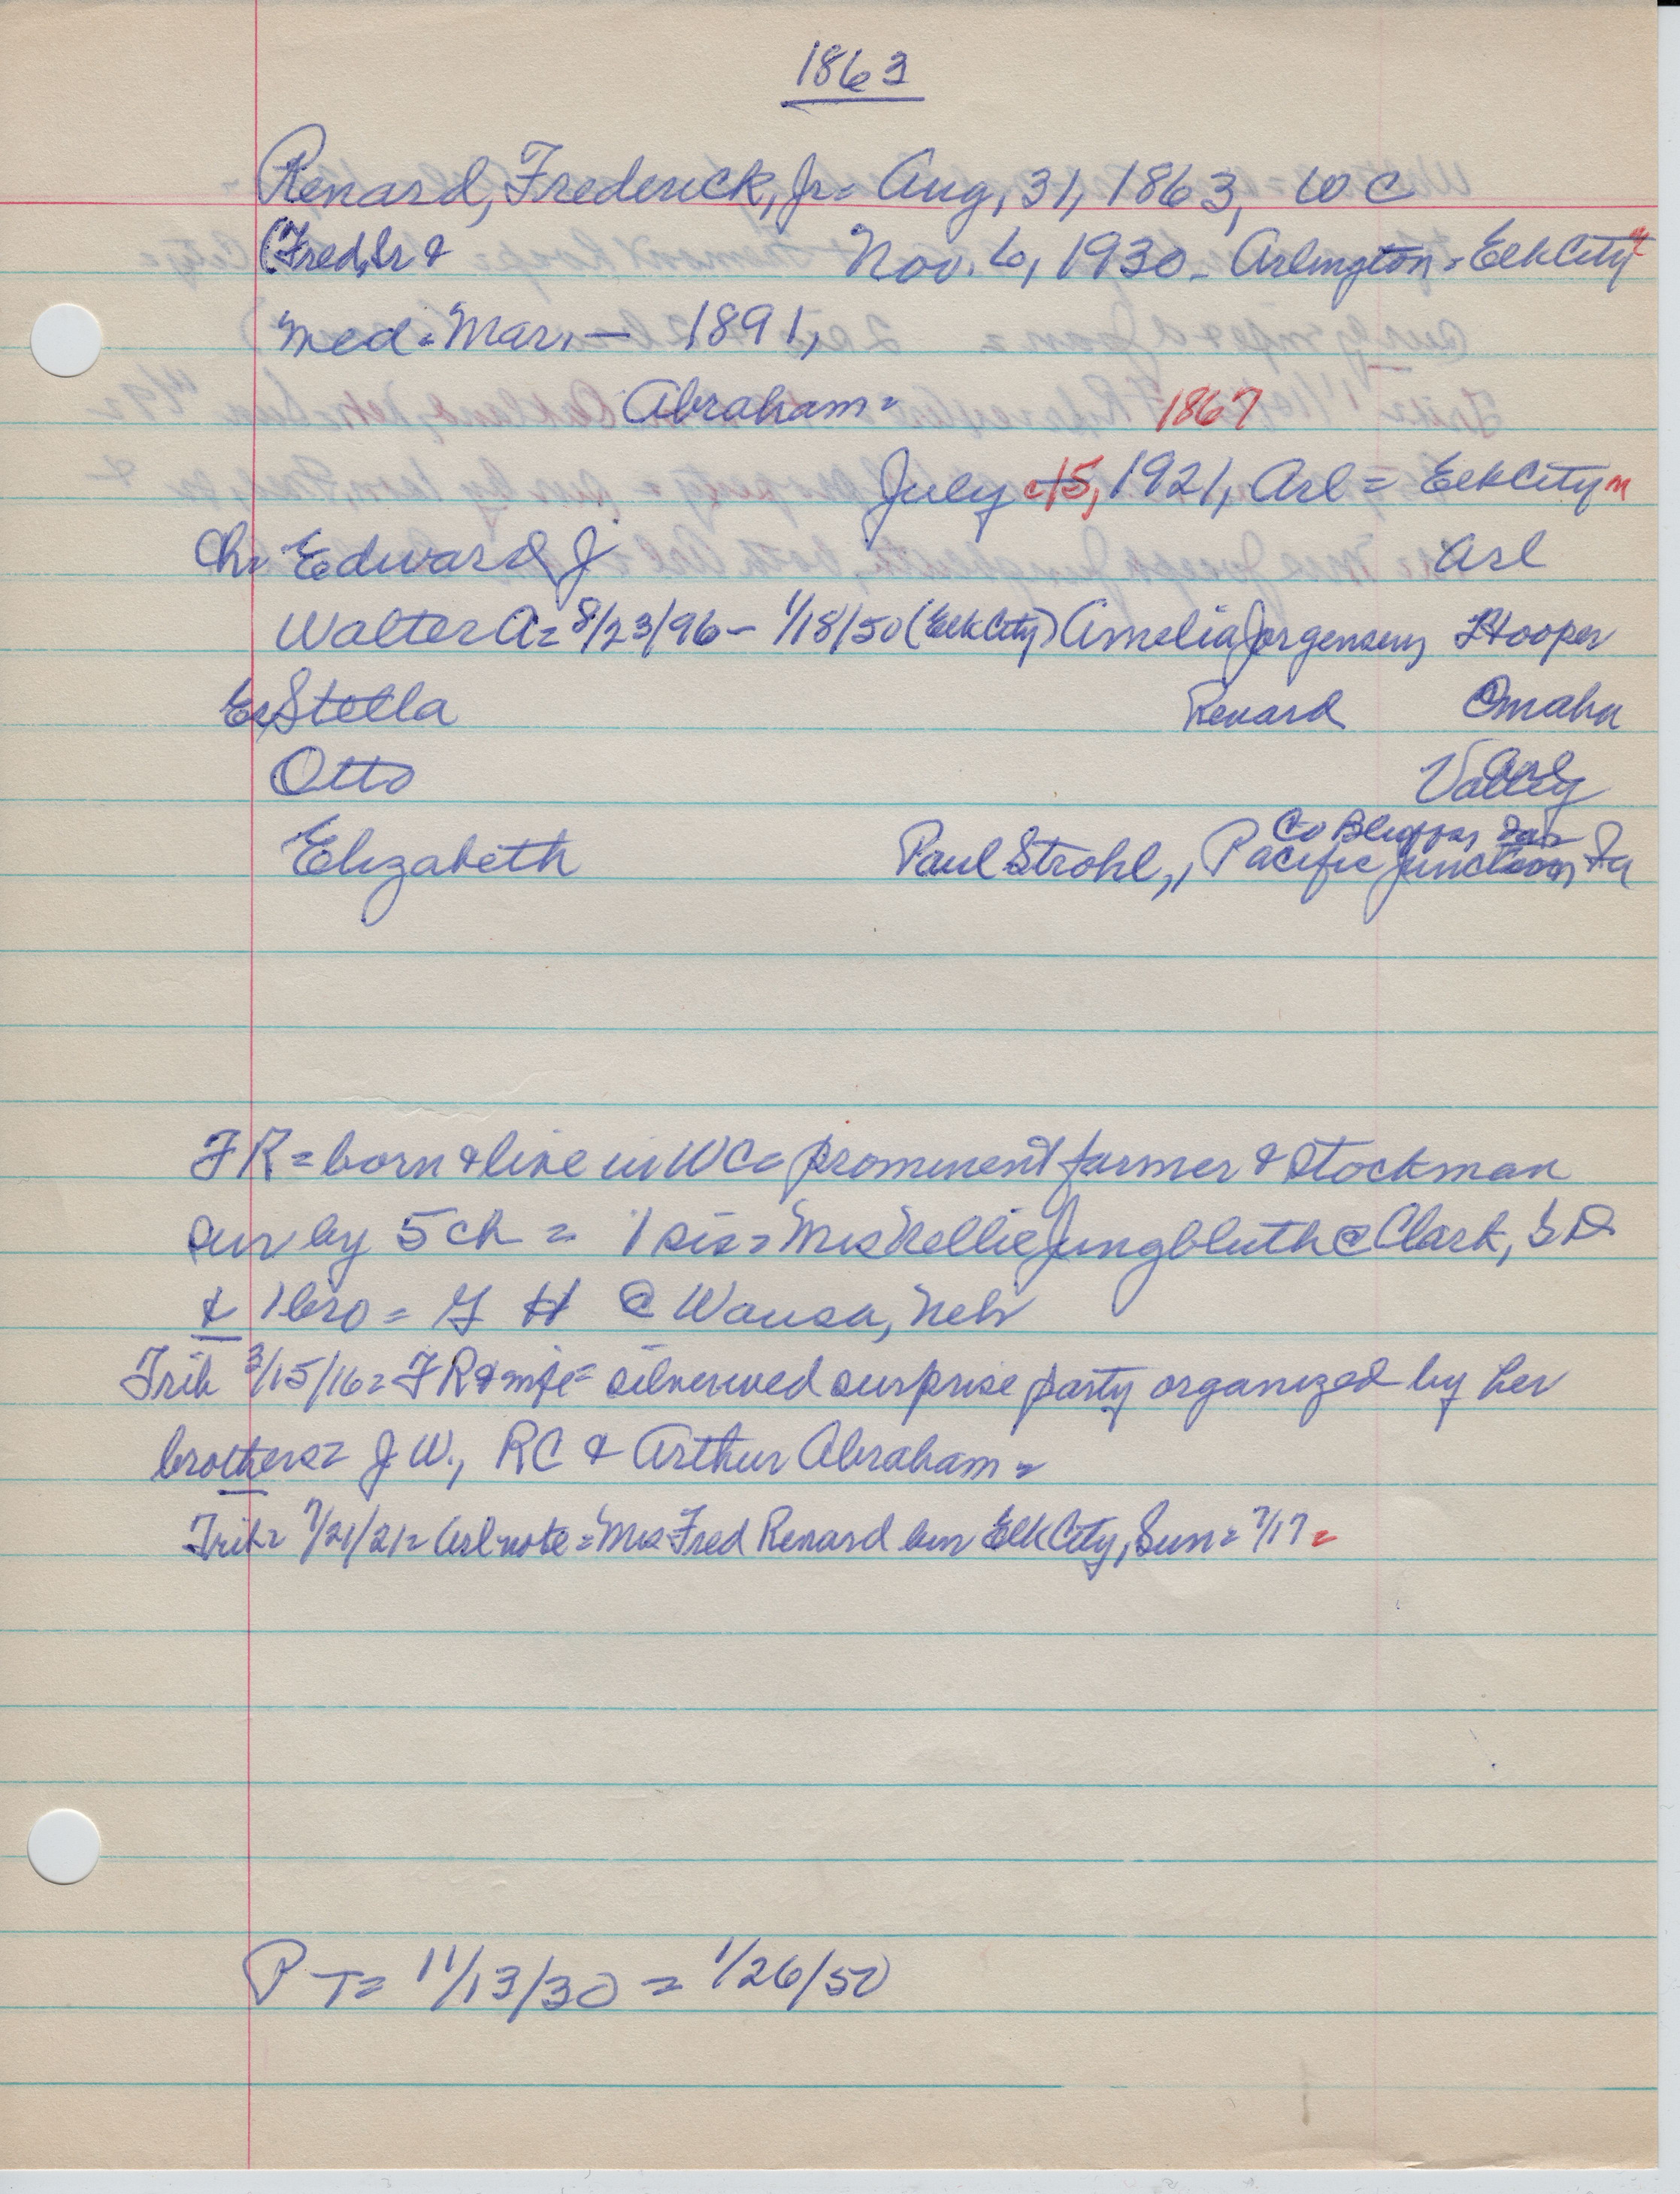 1863
Renard, Frederick, Jr= Aug, 31, 1863, WC
(Fred, Sr & Nov. 6, 1930 - Arlington = Elk City
med = Mar, — 1891,
Abraham = 1867
July c 15, 1921, Arl = Elk City
Ch= Edward J Arl
Walter A= 8/23/96 - 1/18/50 (Elk City) Amelia Jorgensen, Hooper
Stella Renard Omaha
Otto Valley
Co Bluffs, Ia
Elizabeth Paul Strohl,, Pacific Junction, Ia
FR = born & live in WC = prominent farmer & stockman
sur by 5 ch = 1 sis = Mrs Nellie Jungbluth @ Clark, S D
& 1 bro = G H @ Wausa, Neb
Trib 3/15/16 = FR & wife = silver wed surprise party organized by her
brothers = J W., RC & Arthur Abraham =
Trib = 7/21/21 = Arl note = Mrs Fred Renard bur Elk City, Sun = 7/17 =
P T = 11/13/30 = 1/26/50